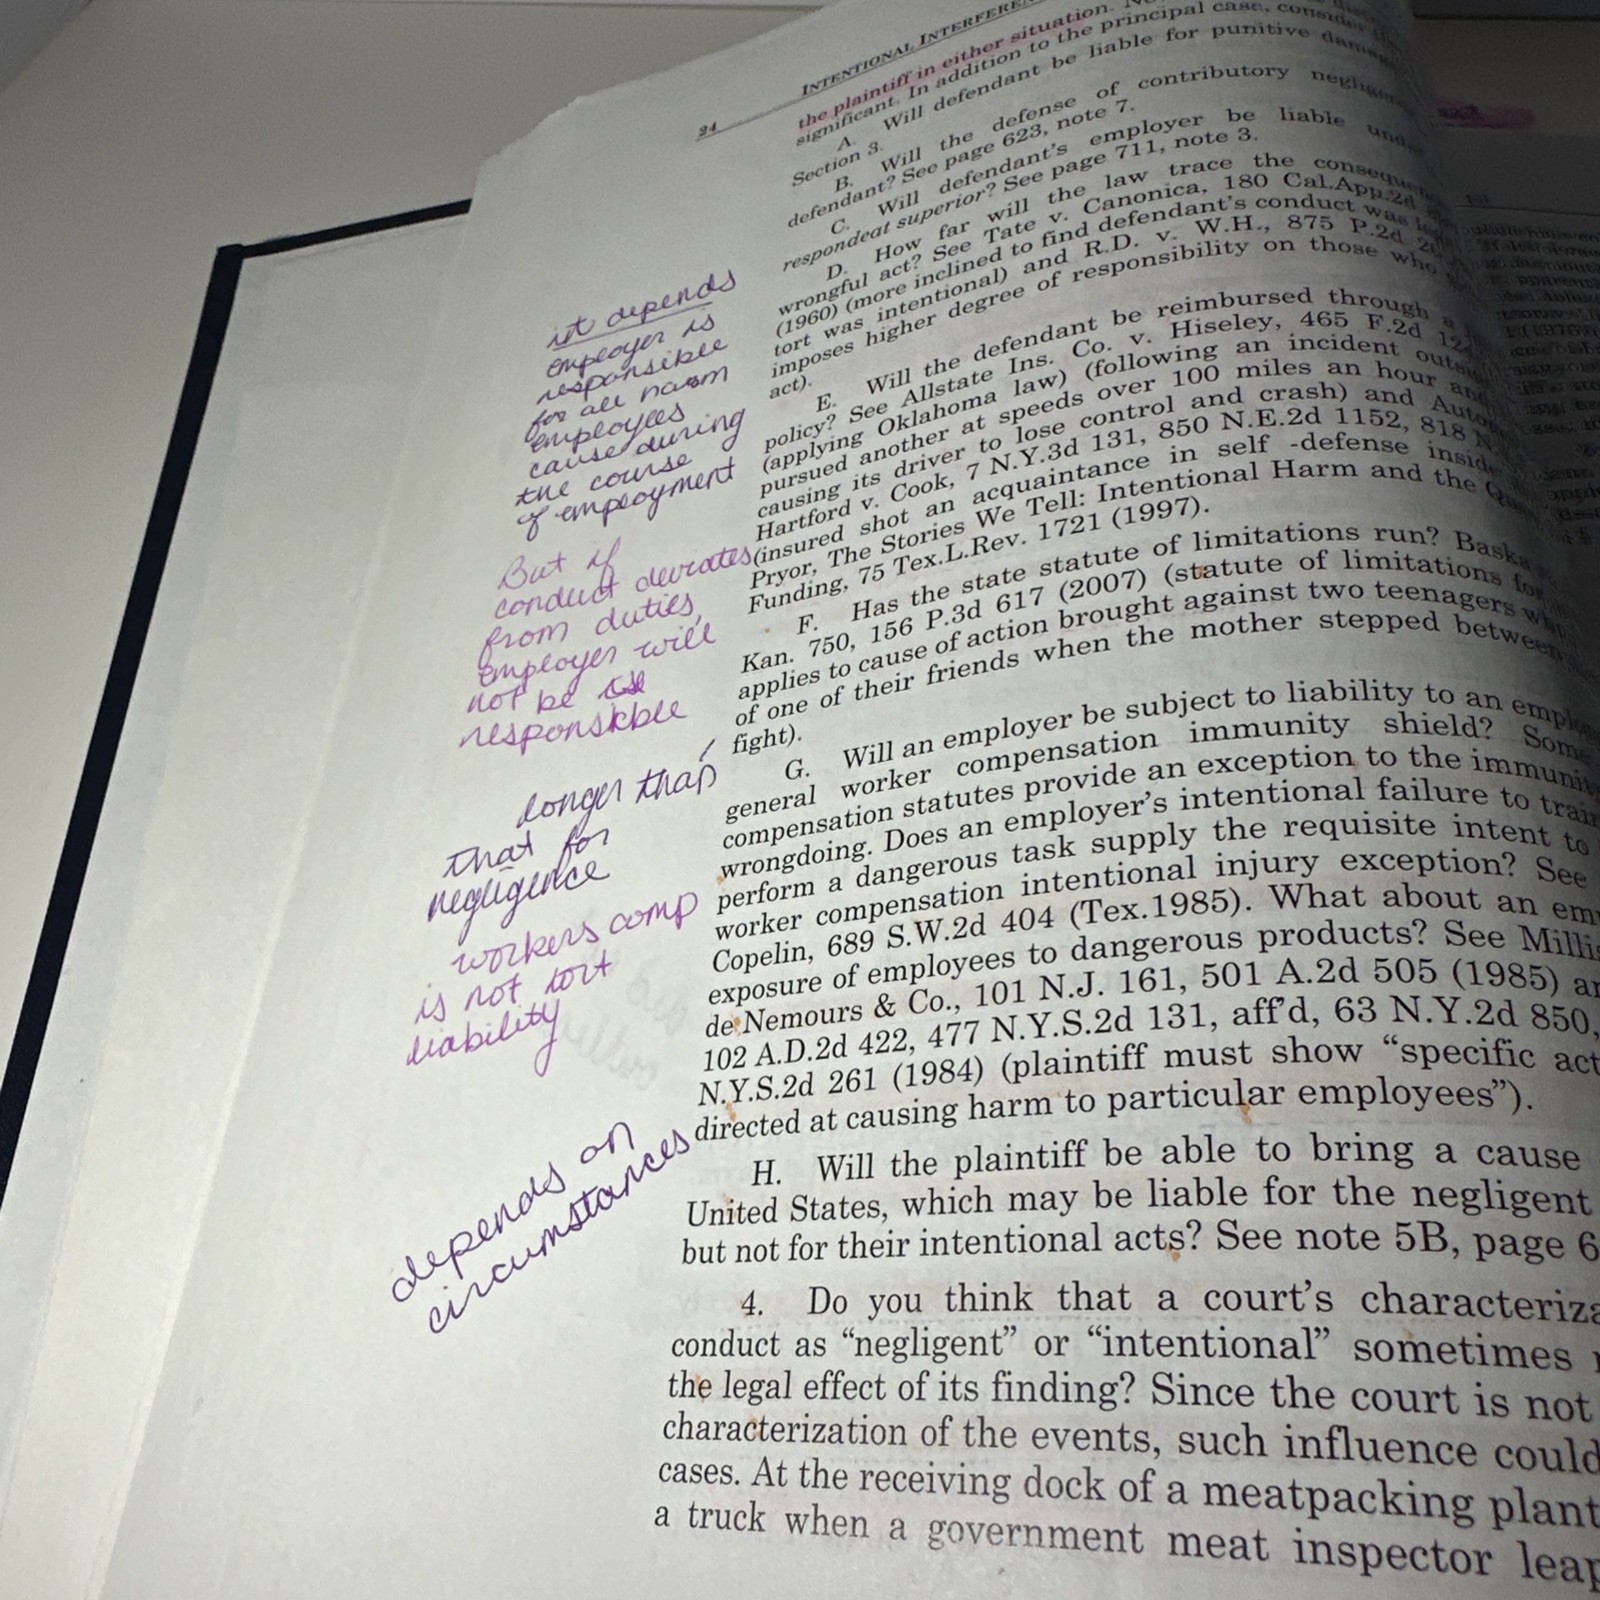 24
INTENTIONAL
the plaintiff in either situation.
significant. In addition to the principal case, consider
A. Will defendant be liable for punitive
Section 3.
B. Will the defense of contributory
defendant? See page 623, note 7.
C. Will defendant's employer be liable
respondeat superior? See page 711, note 3.
D. How far will the law trace the
wrongful act? See Tate v. Canonica, 180 Cal.App.2d
(1960) (more inclined to find defendant's conduct was
tort was intentional) and R.D. v. W.H., 875 P.2d
imposes higher degree of responsibility on those who
act).
E. Will the defendant be reimbursed through
policy? See Allstate Ins. Co. v. Hiseley, 465 F.2d
(applying Oklahoma law) (following an incident
pursued another at speeds over 100 miles an hour
causing its driver to lose control and crash) and
Hartford v. Cook, 7 N.Y.3d 131, 850 N.E.2d 1152, 818
(insured shot an acquaintance in self -defense
Pryor, The Stories We Tell: Intentional Harm and the
Funding, 75 Tex.L.Rev. 1721 (1997).
F. Has the state statute of limitations run?
Kan. 750, 156 P.3d 617 (2007) (statute of limitations
applies to cause of action brought against two teenagers
of one of their friends when the mother stepped
fight).
G. Will an employer be subject to liability to an
general worker compensation immunity shield? Some
compensation statutes provide an exception to the
wrongdoing. Does an employer's intentional failure to
perform a dangerous task supply the requisite intent to
worker compensation intentional injury exception? See
Copelin, 689 S.W.2d 404 (Tex.1985). What about an
exposure of employees to dangerous products? See
de Nemours & Co., 101 N.J. 161, 501 A.2d 505 (1985)
102 A.D.2d 422, 477 N.Y.S.2d 131, aff'd, 63 N.Y.2d 850,
N.Y.S.2d 261 (1984) (plaintiff must show "specific
directed at causing harm to particular employees").
H. Will the plaintiff be able to bring a cause
United States, which may be liable for the negligent
but not for their intentional acts? See note 5B, page
4. Do you think that a court's
conduct as "negligent" or "intentional" sometimes
the legal effect of its finding? Since the court is not
characterization of the events, such influence could
cases. At the receiving dock of a meatpacking plant
a truck when a government meat inspector
it depends
employer is
responsible
for all harm
employees
cause during
the course
of employment
But if
conduct deviates
from duties,
employer will
not be
responsible
longer than
that for
negligence
workers comp
is not tort
liability
depends on
circumstances